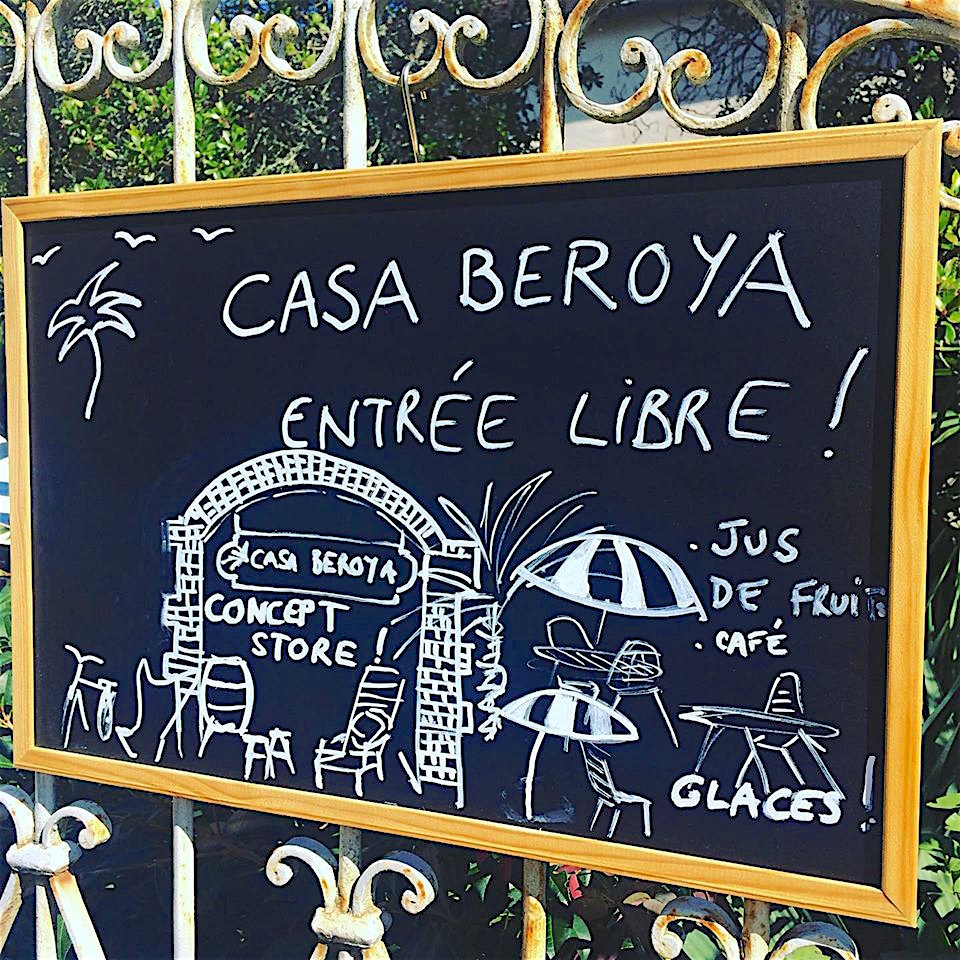 CASA BEROYA
ENTRÉE LIBRE !
CASA BEROYA
CONCEPT
STORE !
. JUS
DE FRUITS
. CAFÉ
GLACES !